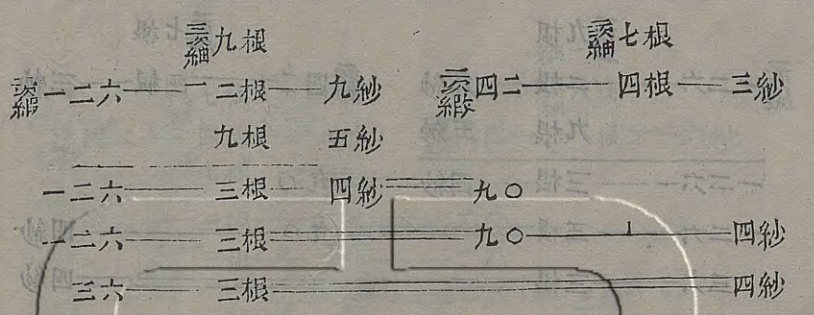 次紬九根 次紬七根
次緞一二六——一二根——九紗 二次緞四二——四根——三紗
九根 五紗
一二六——三根 四紗==九〇
一二六——三根==九〇——四紗
三六——三根==四紗